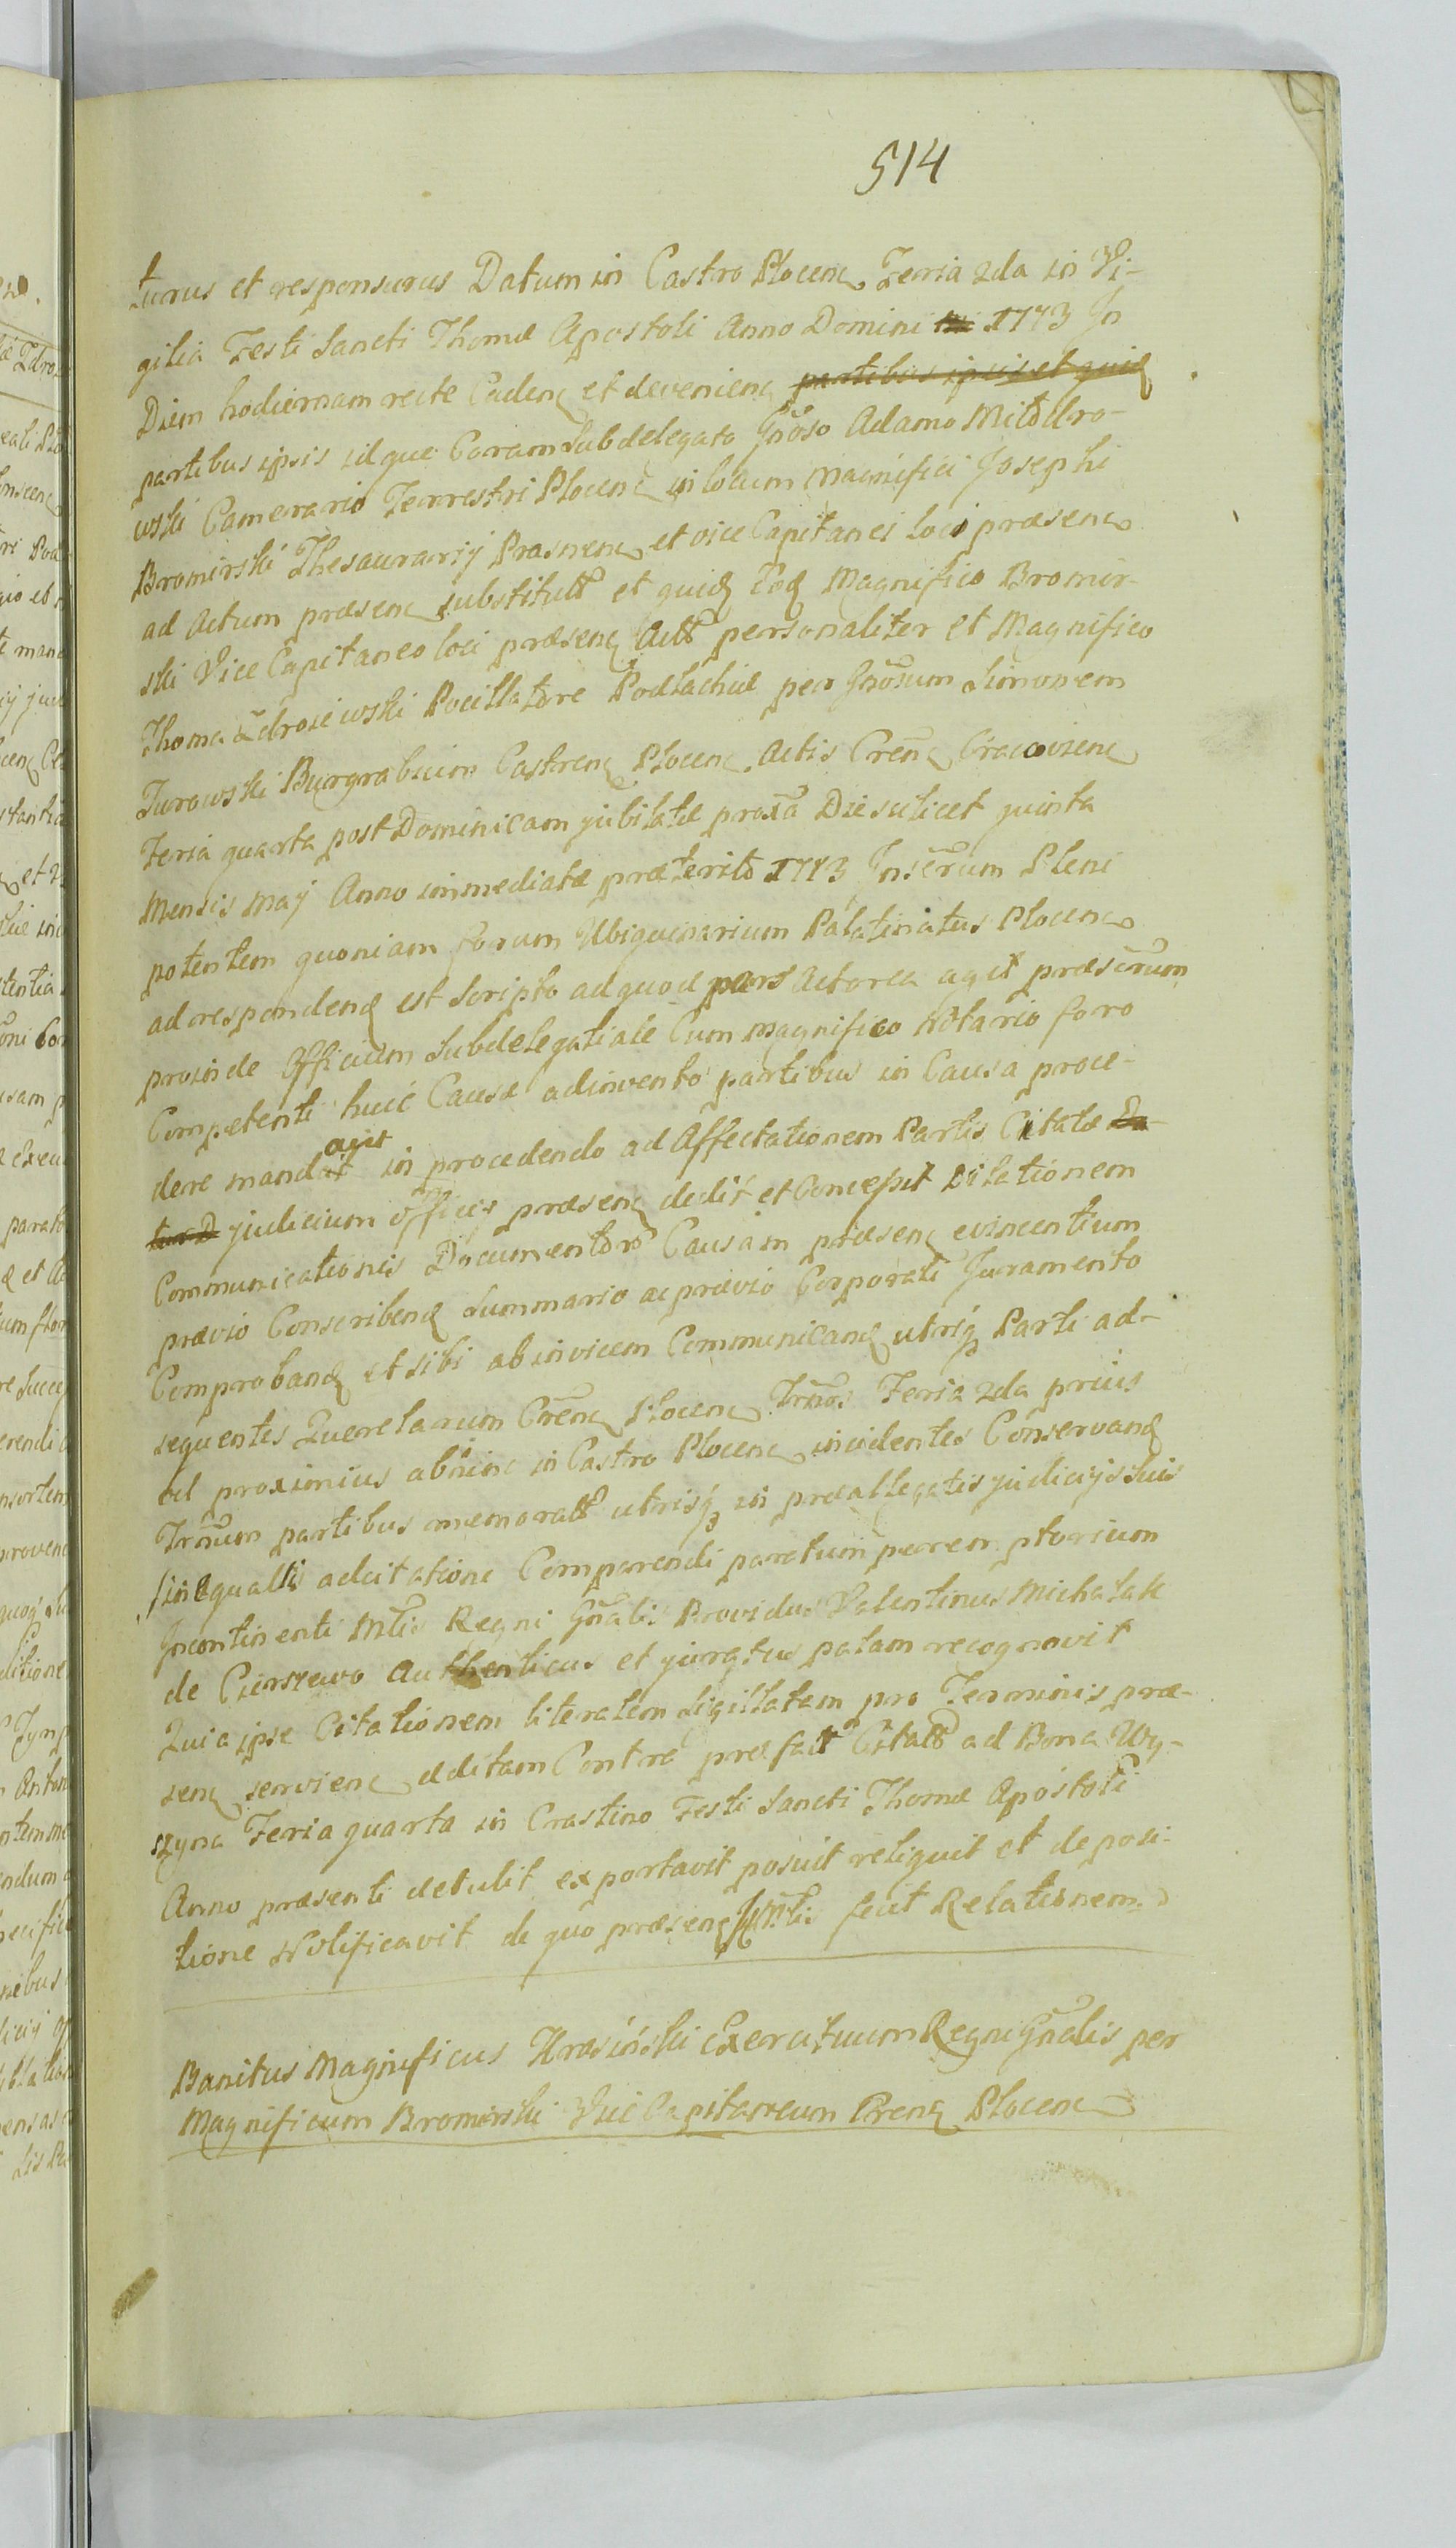 514
turus et responsurus Datum in Castro Plocen Feria 2da in Vi-
gilia Festi Sancti Thomæ Apostoli Anno Domini 1773 In
Diem hodiernam recte Caden et devenien partibus ipsis et quid
partibus ipsis silque Coram Subdelegato Gnōso Adamo Miłodro-
wski Camerario Terrestri Plocen in locum Magnifici Josephi
Bromirski Thesaurarij Prasnen et vice Capitanei loci præsen
ad Actum præsen substitutt et quid Eod Magnifico Bromir-
ski Vice Capitaneo loci præsen Actt personaliter et Magnifico
Thoma Zdroiewski Pocillatore Podlachiæ per Gnōsum Simonem
Turowski Burgrabium Castren Plocen Actis Cren Cracovien
Feria quarta post Dominicam jubilatæ proxa Die scilicet quinta
Mensis Maj Anno immediatæ præterito 1773 Inscrum Pleni
potentem quoniam forum Ubiquinarium Palatinatus Plocen
ad responden est Scripto ad quod pars Actorea agit præscrum
proinde Officium Subdelegatiale Cum Magnifico Notario foro
Competenti huic Causæ adinvento partibus in Causa proce-
dere mandat agit in procedendo ad Affectationem Partis Citatæ
judicium officij præsen dedit et Concepit Dilationem
Communicationis Documentoro Causam præsen evincentium
prævio Conscriben Summario ac prævio Corporali Juramento
Comproban et sibi ab invicem Communican utriq Parti ad-
sequentes Querelarum Cren Plocen Trnos Feria 2da prius
ad proximius abhinc in Castro Plocen incidentes Conservan
Trnum partibus memoratt utrisq in præallegatis judicijs suis
sine qualli adcitatione Comparendi paratum peremptorium
Incontinenti Mtis Regni Gnalis Providus Valentinus Michalak
de Cierszewo Authenticus et juratus palam recognovit
Quia ipse Citationem literalem Sigillatam pro Terminis præ-
sen servien editam Contra præfatt Citatt ad Bona Wy-
szyna Feria quarta in Crastino Festi Sancti Thomæ Apostoli
Anno præsenti detulit exportavit posuit reliquit et de posi-
tione Notificavit de quo præsen Mtis fecit Relationem
Banitus Magnificus Krasiński Exercituum Regni Gnalis per
Magnificum Bromirski Vice Capitaneum Cren Plocen